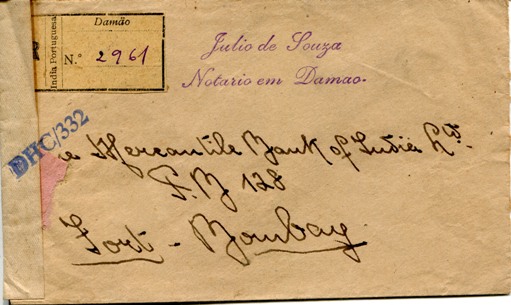 Damão
India Portuguesa
N.º 2961
Julio de Souza
Notario em Damao.
DHC/332
e Mercantile Bank of India Ltd.
P.B 128
Fort - Bombay